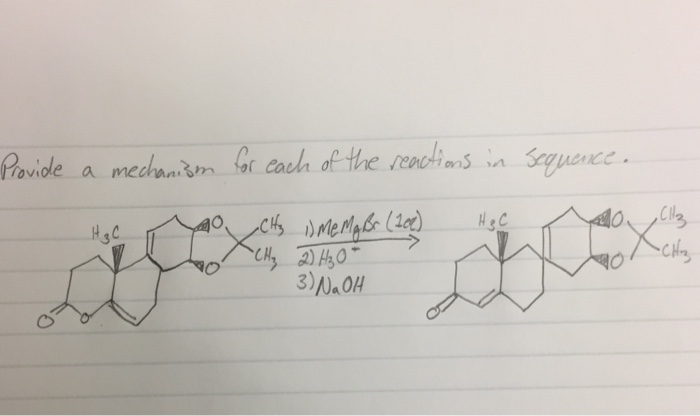 Provide a mechanism for each of the reactions in sequence.
H3C O CH3 CH3 O O O
1) MeMgBr (1eq)
2) H3O-
3) NaOH
H3C O CH3 CH3 O O